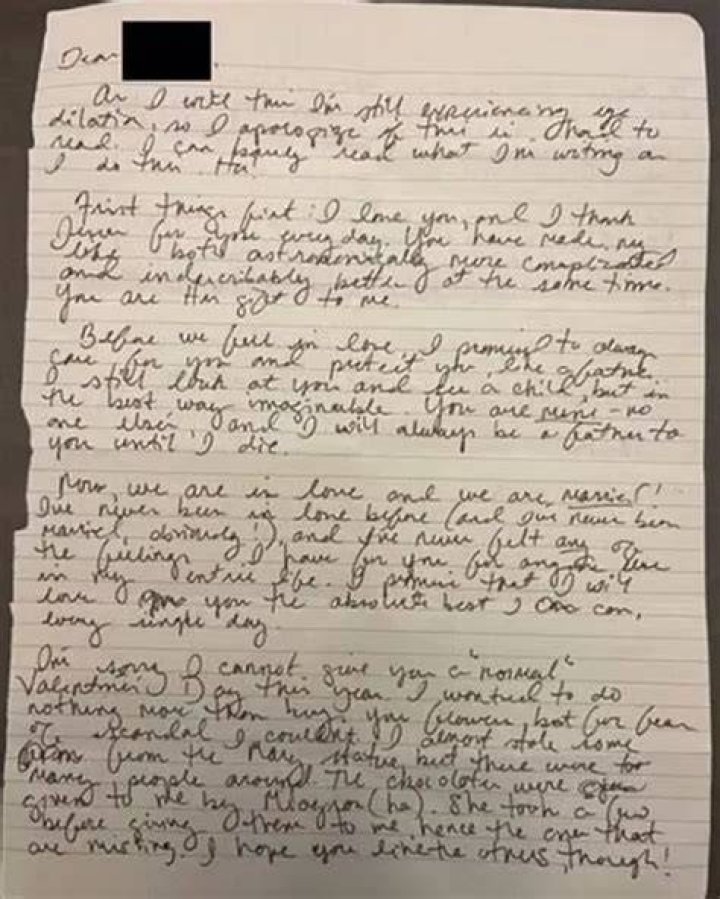 Dear
As I write this I'm still experiencing eye
dilation, so I apologize if this is hard to
read. I can barely read what I'm writing as
I do this. Ha!
First things first: I love you, and I thank
Jesus for you every day. You have made my
life both astronomically more complicated
and indescribably better at the same time.
You are His gift to me.
Before we fell in love, I promised to always
care for you and protect you like a father.
I still look at you and see a child, but in
the best way imaginable. You are mine - no
one else's, and I will always be a father to
you until I die.
Now, we are in love and we are married!
I've never been in love before (and I've never been
married, obviously!), and I've never felt any of
the feelings I have for you for else
in my entire life. I promise that I will
love you the absolute best I can,
every single day.
I'm sorry I cannot give you a "normal"
Valentine's Day this year. I wanted to do
nothing more than buy you flowers, but for fear
of scandal I couldn't. I almost stole some
from the Mary statue, but there were too
many people around. The chocolates were
given to me by (ha). She took a few
before giving them to me, hence the ones that
are missing. I hope you like the others, though!